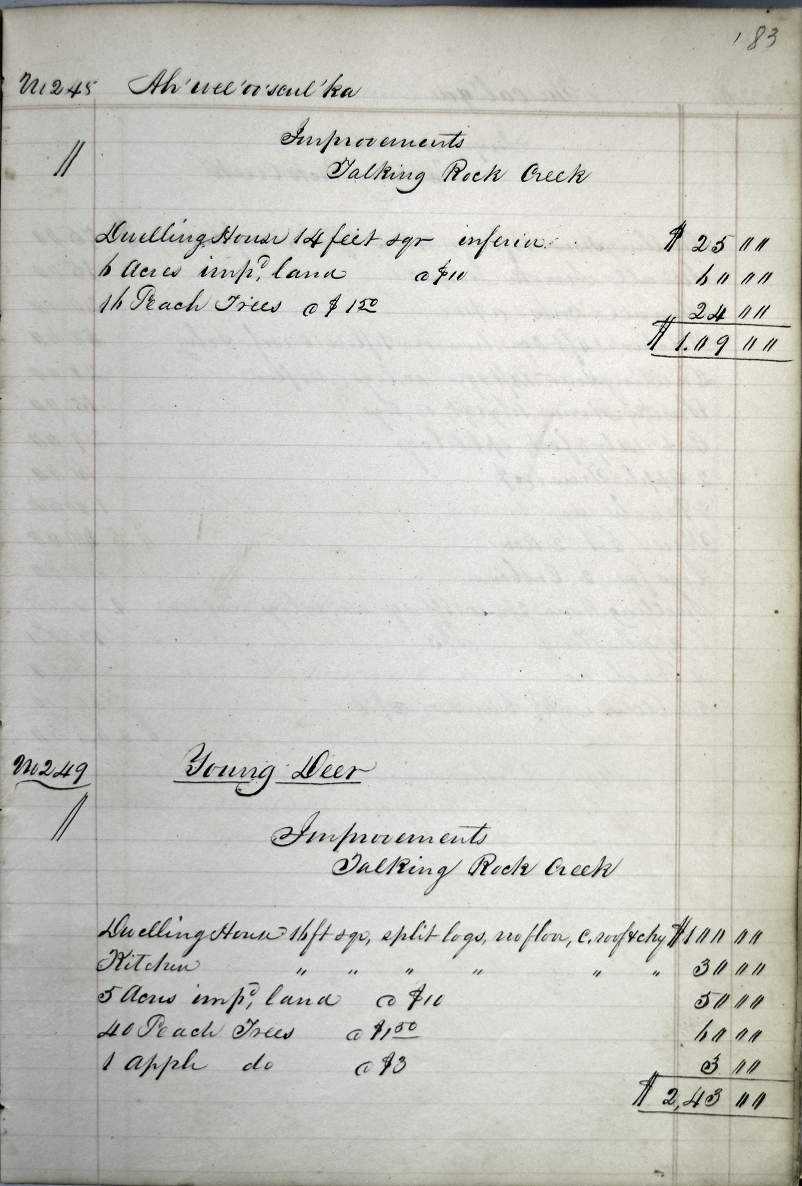 183
No 245 Ah'wee'oo'scul'ka
Improvements
Talking Rock Creek
Dwelling House 14 feet sqr inferia $ 25 00
6 Acres imp.d land @ $10 60 00
16 Peach Trees @ $1 50 24 00
$ 1.09 00
No 249 Young Deer
Improvements
Talking Rock Creek
Dwelling House 16 ft sqr, split logs, no floor, C. roof & chy $ 100 00
Kitchen " " " " " " 30 00
5 Acres imp.d, land @ $10 50 00
40 Peach Trees @ $1 50 60 00
1 Apple do @ $3 3 00
$ 2,43 00